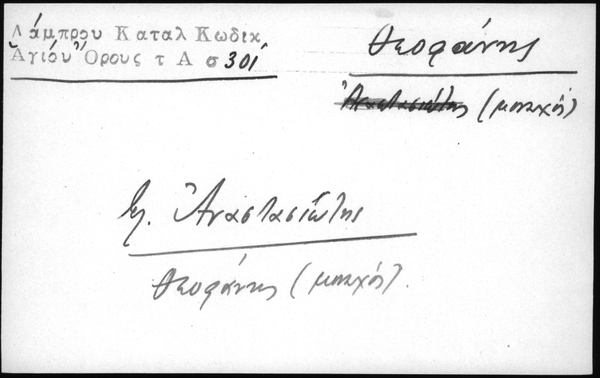 Λάμπρου Καταλ Κωδικ
Ἁγίου Ὄρους τ Α σ 301
Θεοφάνης
Ἀναστασιώτης (μοναχός)
Ἀναστασιώτης
Θεοφάνης (μοναχός).